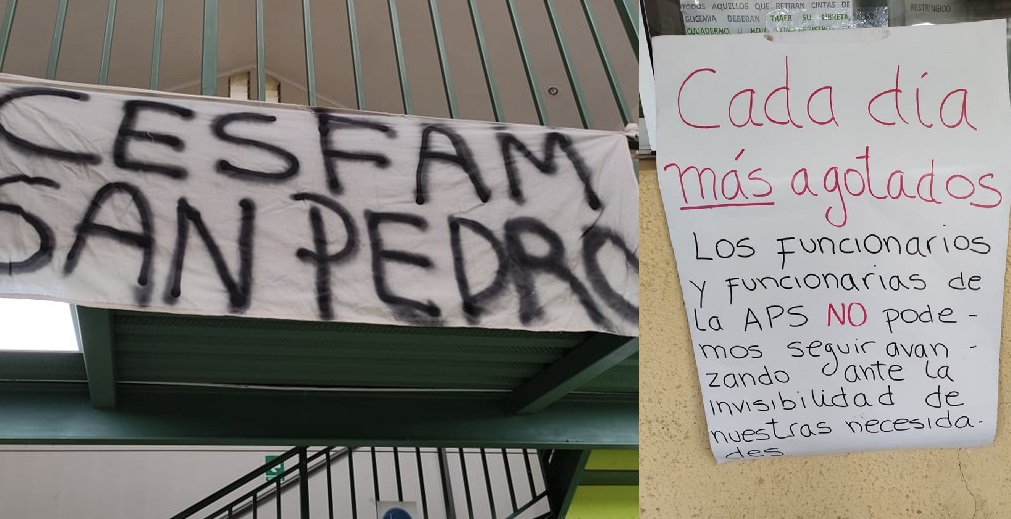 CESFAM
SAN PEDRO
TODOS AQUELLOS QUE RETIRAN CINTAS DE
GLICEMIA DEBERAN TRAER SU LIBRETA,
RESTRINGIDO
Cada día
más agotados
Los funcionarios
y funcionarias de
la APS NO pode-
mos seguir avan-
zando ante la
invisibilidad de
nuestras necesida-
des